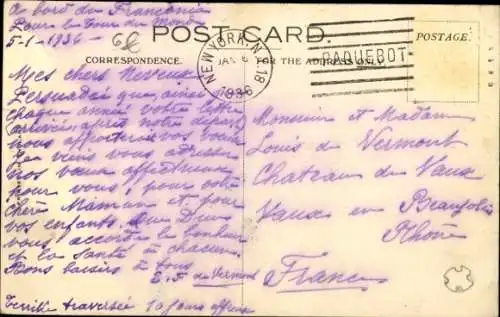 A bord du Franconia
Pour le Tour du Monde
5-1-1936
POST CARD.
CORRESPONDENCE.
FOR THE ADDRESS ONLY.
POSTAGE.
NEW YORK, N.Y. 18
JAN 6
1936
PAQUEBOT
Mes chers Neveux
Persuadée que, ainsi
chaque année votre lettre
arrivée après notre départ
nous apportera vos vœux
Je viens vous adresser
nos vœux affectueux
pour vous, pour votre
chère Maman et pour
vos enfants. Que Dieu
vous accorde le bonheur
et la santé à chacun.
Bons baisers à tous
E. F. de Vermont
Terrible traversée 10 jours affreux
Monsieur et Madame
Louis de Vermont
Chateau de Vaux
Vaux en Beaujolais
Rhône
France